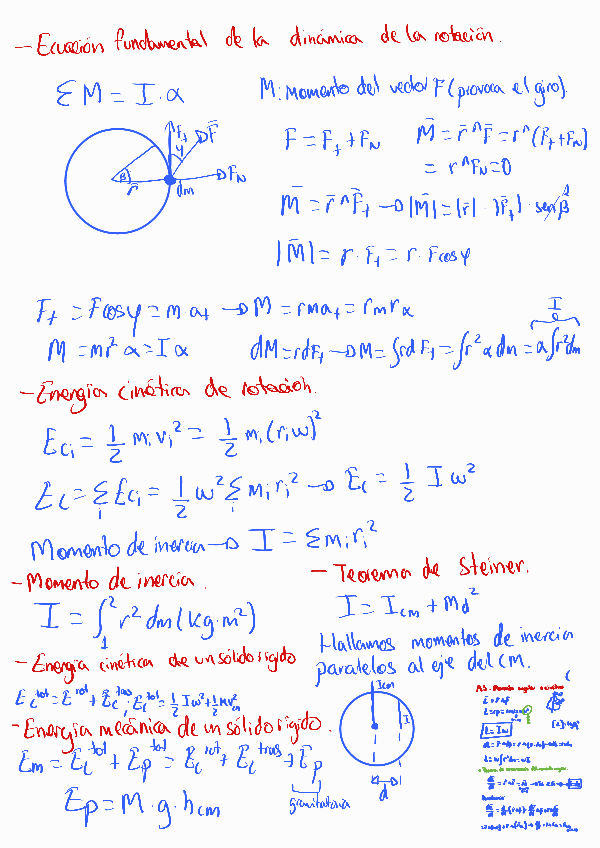 - Ecuación fundamental de la dinámica de la rotación.
ΣM = I·α
M: momento del vector F (provoca el giro)
F = F_t + F_N
M̄ = r̄^F̄ = r^(F_t+F_N)
= r^F_N = 0
F_t
F̄
φ
F_N
β
r̄
dm
M̄ = r̄^F̄_t → |M̄| = |r̄|·|F̄_t|· sen β 1
|M̄| = r·F_t = r·Fcosφ
F_t = Fcosφ = m a_t → M = r m a_t = r m r α
I
M = mr²α = Iα
dM = rdF_t → M = ∫rdF_t = ∫r²α dm = α∫r²dm
- Energía cinética de rotación.
E_ci = 1/2 m_i v_i² = 1/2 m_i (r_i ω)²
E_c = Σ_i E_ci = 1/2 ω² Σ_i m_i r_i² → E_c = 1/2 I ω²
Momento de inercia → I = Σ m_i r_i²
- Momento de inercia.
I = ∫_1^2 r² dm (kg·m²)
- Teorema de Steiner.
I = I_cm + Md²
Hallamos momentos de inercia
paralelos al eje del CM.
I_cm
I
d
- Energía cinética de un sólido rígido
E_c^tot = E_c^rot + E_c^tras; E_c^tot = 1/2 Iω² + 1/2 MV²_cm
- Energía mecánica de un sólido rígido.
E_m = E_c^tot + E_p^tot = E_c^rot + E_c^tras + E_p
gravitatoria
E_p = M·g·h_cm